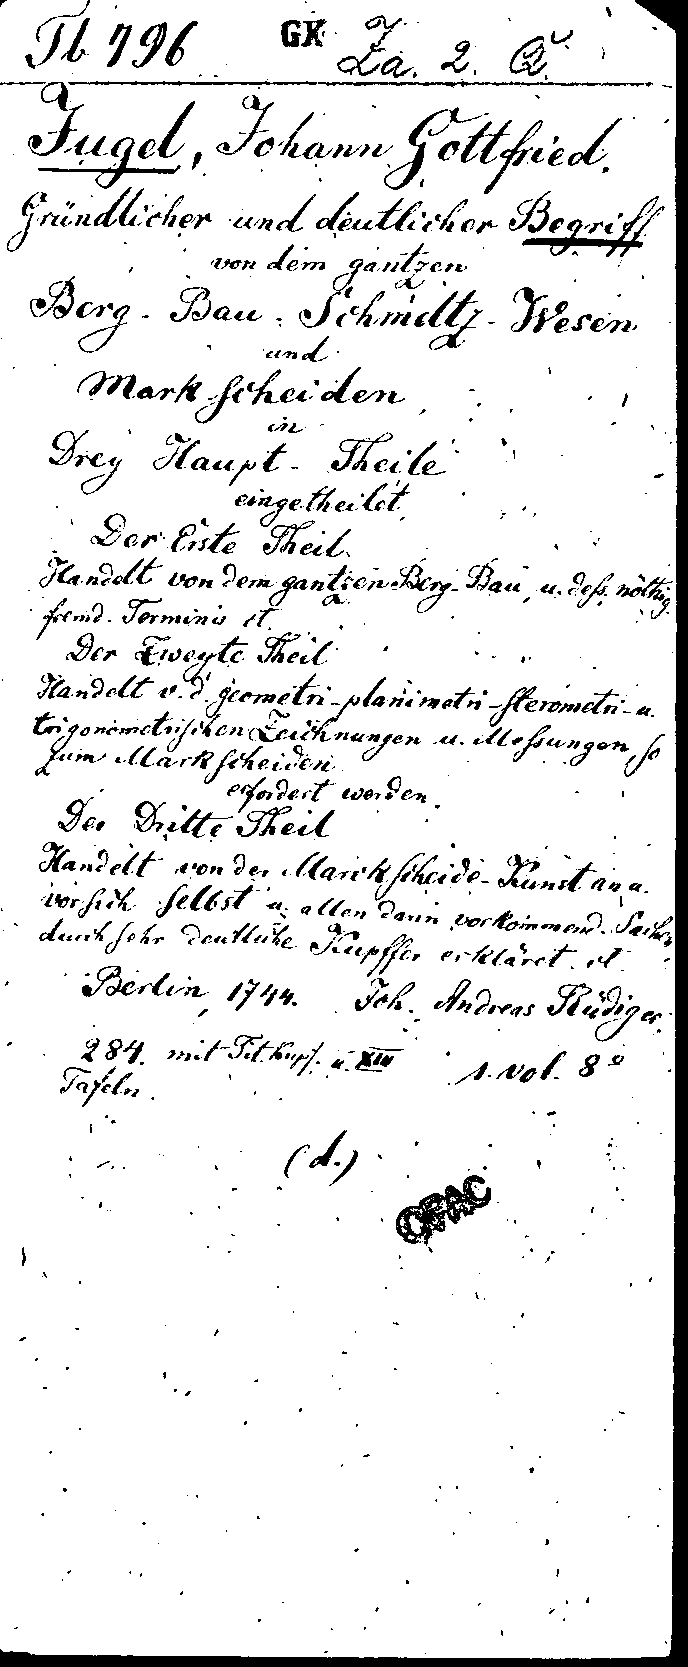 Tb 796 GK Za. 2. Q
Jugel, Johann Gottfried.
Gründlicher und deutlicher Begriff
von dem gantzen
Berg- Bau- Schmeltz- Wesen
und
Markscheiden
in
Drey Haupt- Theile
eingetheilet
Der Erste Theil.
Handelt von dem gantzen Berg-Bau, u. dess. nöthig
fremd. Terminis et
Der Zweyte Theil
Handelt v. d. geometri-planimetri-sterometri- u.
trigonometrischen Zeichnungen u. Messungen, so
zum Markscheiden
erfordert werden.
Der Dritte Theil
Handelt von der Marckscheide-Kunst an u.
vor sich selbst u. allen darin vorkommend. Sachen
durch sehr deutliche Kupffer erkläret et
Berlin, 1744. Joh. Andreas Rüdiger.
284. mit Tit. Kupf. u. XIII 1. vol. 8°
Tafeln.
(d.)
OPAC